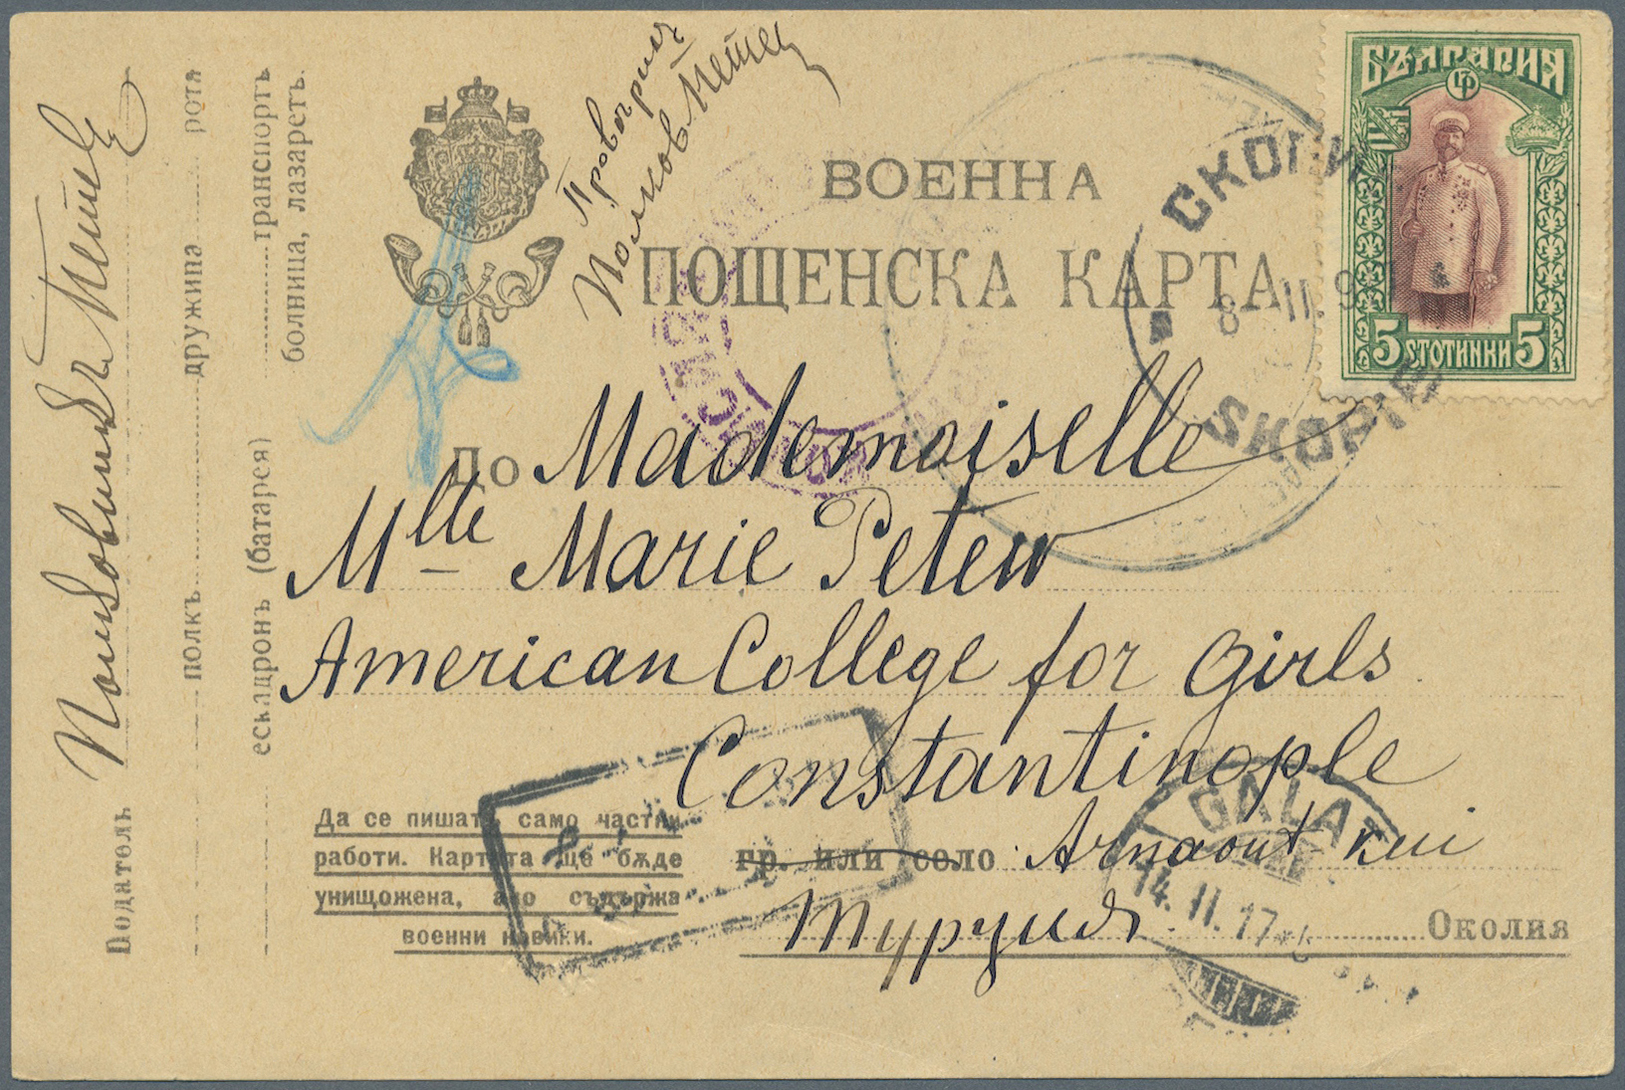 Провѣрилъ
Полков. Петевъ
ВОЕННА
ПОЩЕНСКА КАРТА
БЪЛГАРИЯ
5 СТОТИНКИ 5
СКОПИЕ
8 II. 9
SKOPIE
До Mademoiselle
Mlle Marie Petew
American College for Girls
Constantinople
гр. или село Arnaout-kui
Турция Околия
GALATA
14. II. 17
Да се пишатъ само частни
работи. Картата ще бѫде
унищожена, ако съдържа
военни новини.
Податель Полковникъ Петевъ
полкъ дружина рота
ескадронъ (батарея) транспортъ
болница, лазаретъ.